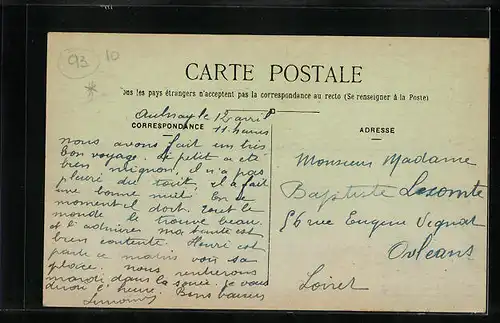 93 10
*
CARTE POSTALE
ous les pays étrangers n'acceptent pas la correspondance au recto (Se renseigner à la Poste)
Aulnay le 12 avril
CORRESPONDANCE 11 heures
nous avons fait un très
bon voyage. le petit a été
bien mignon, il n'a pas
pleuré du tout, il a fait
une bonne nuit. En ce
moment il dort. Tout le
monde le trouve beau
et l'admire, ma tante est
bien contente. Henri est
parti ce matin voir sa
place. nous rentrerons
mardi dans la soirée. je vous
dirai l'heure. Bons baisers
ADRESSE
Monsieur Madame
Baptiste Lecomte
56 rue Eugene Vignat
Orléans
Loiret